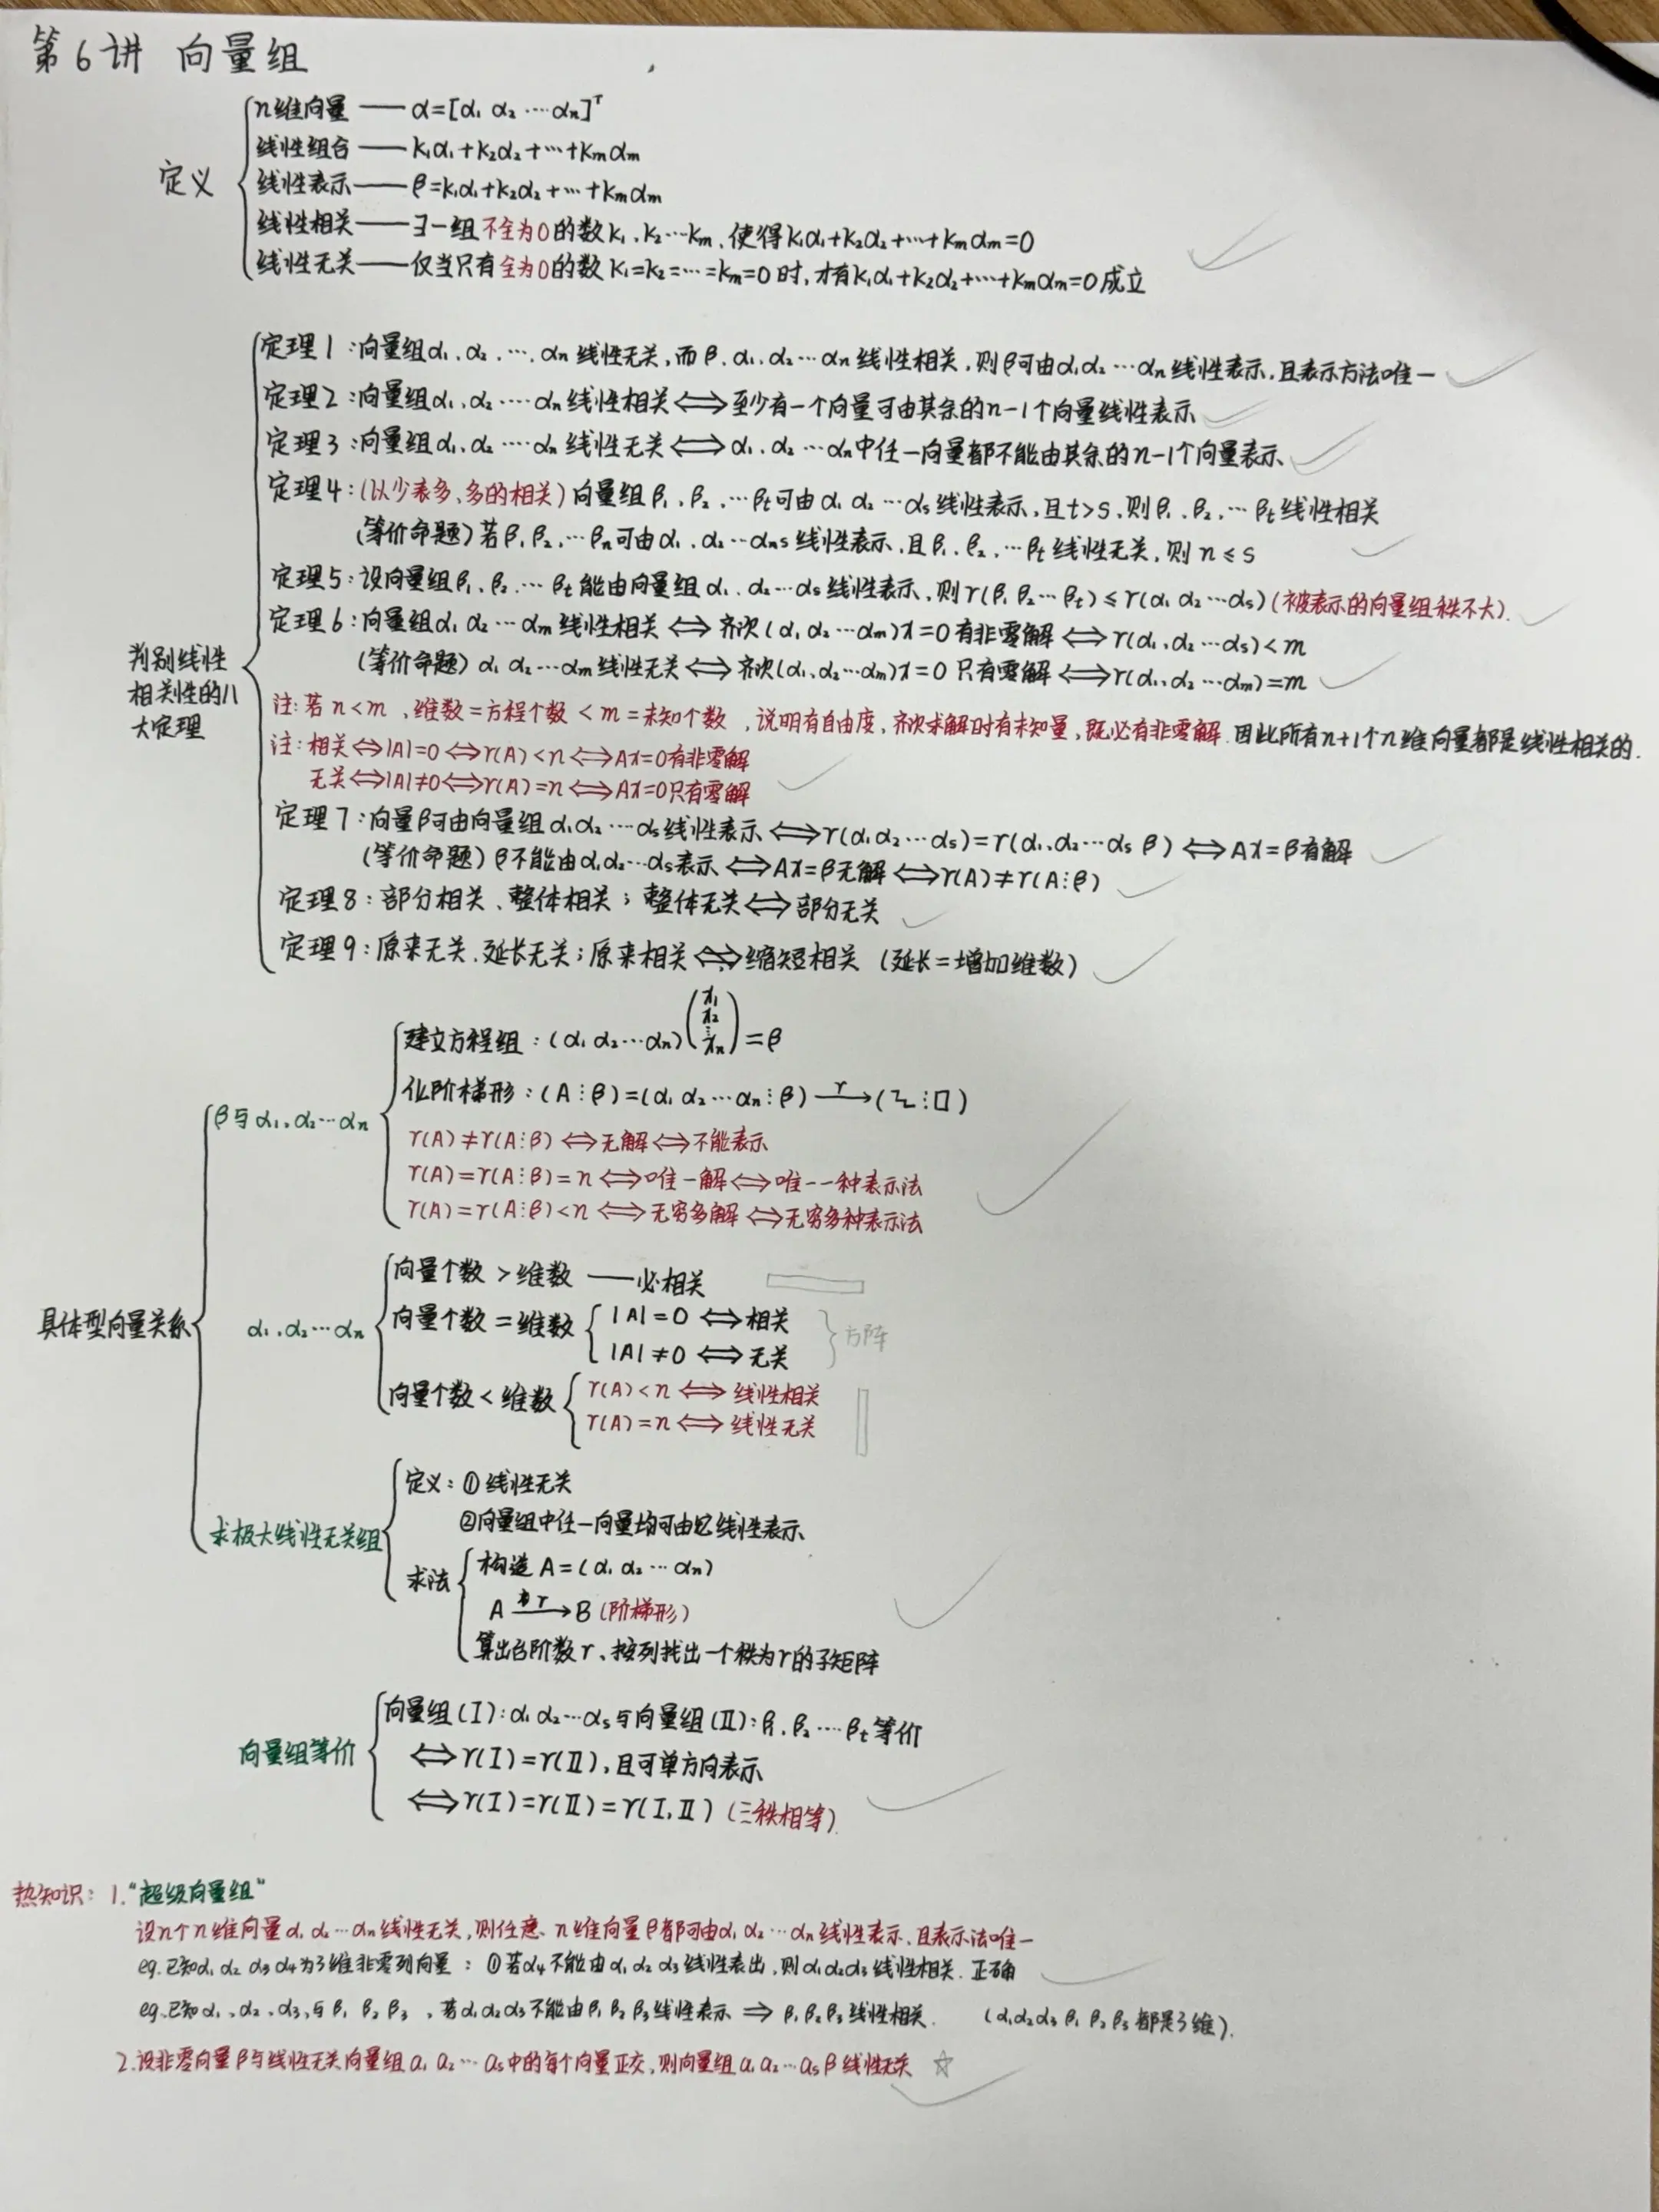 第6讲 向量组
n维向量 —— α=[α₁ α₂ ⋯ αₙ]ᵀ
线性组合 —— k₁α₁+k₂α₂+⋯+kₘαₘ
定义
线性表示 —— β=k₁α₁+k₂α₂+⋯+kₘαₘ
线性相关 —— ∃一组不全为0的数k₁、k₂⋯kₘ、使得k₁α₁+k₂α₂+⋯+kₘαₘ=0
线性无关 —— 仅当只有全为0的数k₁=k₂=⋯=kₘ=0时,才有k₁α₁+k₂α₂+⋯+kₘαₘ=0成立
定理1:向量组α₁、α₂、⋯、αₙ线性无关,而β、α₁、α₂⋯αₙ线性相关,则β可由α₁α₂⋯αₙ线性表示,且表示方法唯一
定理2:向量组α₁、α₂⋯αₙ线性相关⟺至少有一个向量可由其余的n-1个向量线性表示
定理3:向量组α₁、α₂⋯αₙ线性无关⟺α₁、α₂⋯αₙ中任一向量都不能由其余的n-1个向量表示
定理4:(以少表多、多的相关)向量组β₁、β₂、⋯βₜ可由α₁ α₂⋯αₛ线性表示,且t>s,则β₁、β₂、⋯βₜ线性相关
(等价命题)若β₁β₂、⋯βₙ可由α₁、α₂⋯αₙs线性表示,且β₁、β₂、⋯βₜ线性无关,则n≤s
定理5:设向量组β₁、β₂、⋯βₜ能由向量组α₁、α₂⋯αₛ线性表示,则r(β₁β₂⋯βₜ)≤r(α₁α₂⋯αₛ)(被表示的向量组秩不大).
定理6:向量组α₁α₂⋯αₘ线性相关⟺齐次(α₁α₂⋯αₘ)x=0有非零解⟺r(α₁、α₂⋯αₛ)<m
判别线性相关性的八大定理
(等价命题)α₁α₂⋯αₘ线性无关⟺齐次(α₁、α₂⋯αₘ)x=0只有零解⟺r(α₁、α₂⋯αₘ)=m
注:若n<m、维数=方程个数<m=未知个数,说明有自由度,齐次求解时有未知量,既必有非零解.因此所有n+1个n维向量都是线性相关的.
注:相关⟺|A|=0⟺r(A)<n⟺Ax=0有非零解
无关⟺|A|≠0⟺r(A)=n⟺Ax=0只有零解
定理7:向量β可由向量组α₁α₂⋯αₛ线性表示⟺r(α₁α₂⋯αₛ)=r(α₁、α₂⋯αₛ β)⟺Ax=β有解
(等价命题)β不能由α₁α₂⋯αₛ表示⟺Ax=β无解⟺r(A)≠r(A⋮β)
定理8:部分相关、整体相关;整体无关⟺部分无关
定理9:原来无关、延长无关;原来相关⟺缩短相关 (延长=增加维数)
建立方程组:(α₁α₂⋯αₙ)(x₁ x₂ ⋮ xₙ)=β
化阶梯形:(A⋮β)=(α₁α₂⋯αₙ⋮β) —r→ ( ⋮□)
β与α₁、α₂⋯αₙ
r(A)≠r(A⋮β)⟺无解⟺不能表示
r(A)=r(A⋮β)=n⟺唯一解⟺唯一一种表示法
r(A)=r(A⋮β)<n⟺无穷多解⟺无穷多种表示法
向量个数>维数 ——必相关
具体型向量关系
α₁、α₂⋯αₙ
向量个数=维数
|A|=0⟺相关
|A|≠0⟺无关
方阵
向量个数<维数
r(A)<n⟺线性相关
r(A)=n⟺线性无关
求极大线性无关组
定义:①线性无关
②向量组中任一向量均可由它线性表示
求法
构造A=(α₁α₂⋯αₙ)
A —r→ B(阶梯形)
算出台阶数r、按列找出一个秩为r的子矩阵
向量组等价
向量组(Ⅰ):α₁α₂⋯αₛ与向量组(Ⅱ):β₁、β₂⋯βₜ等价
⟺r(Ⅰ)=r(Ⅱ),且可单方向表示
⟺r(Ⅰ)=r(Ⅱ)=r(Ⅰ,Ⅱ)(三秩相等).
热知识:1.“超级向量组”
设n个n维向量α₁α₂⋯αₙ线性无关,则任意n维向量β都可由α₁α₂⋯αₙ线性表示,且表示法唯一
eg.已知α₁α₂α₃α₄为3维非零列向量:①若α₄不能由α₁α₂α₃线性表出,则α₁α₂α₃线性相关.正确
eg.已知α₁、α₂、α₃、与β₁ β₂ β₃,若α₁α₂α₃不能由β₁β₂β₃线性表示⇒β₁β₂β₃线性相关. (α₁α₂α₃β₁β₂β₃都是3维).
2.设非零向量β与线性无关向量组a₁a₂⋯aₛ中的每个向量正交,则向量组a₁a₂⋯aₛβ线性无关 ☆